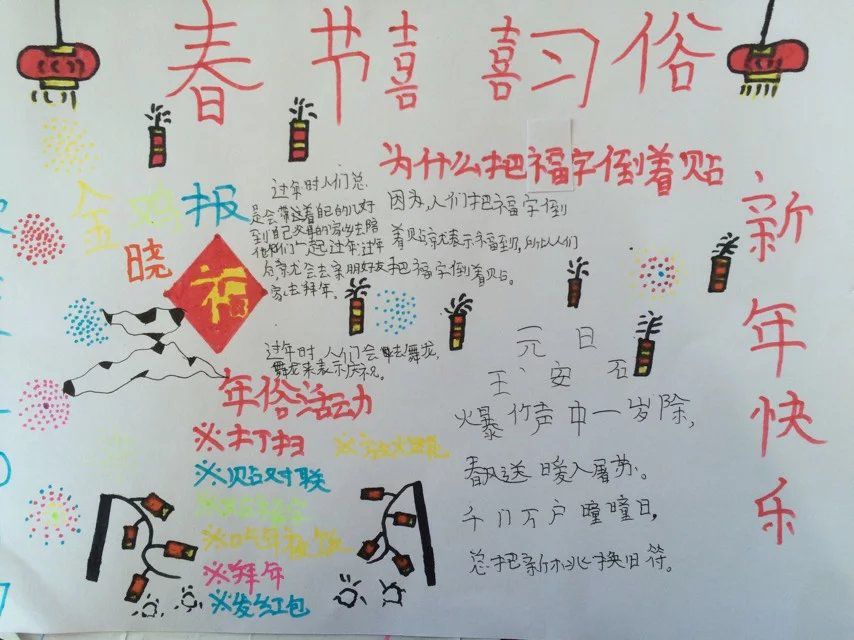 春节喜喜习俗
为什么把福字倒着贴
新年快乐
金鸡报
晓
福
过年时人们总
是会带着自己的儿好
到自己父母的家去陪
他们一起过年.过年
后会去亲朋好友
家去拜年。
因为,人们把福字倒
着贴就表示福到了,所以人们
把福字倒着贴。
过年时,人们会去舞龙,
舞龙来表示庆祝。
年俗活动
※打扫
※贴对联
※吃年夜饭
※拜年
※发红包
元日
王安石
火暴竹声中一岁除,
春风送暖入屠苏。
千门万户瞳瞳日,
总把新桃换旧符。